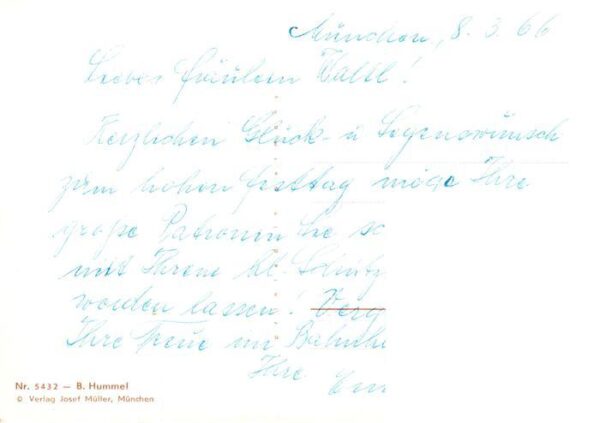 München, 8. 3. 66
Liebes Fräulein Waltl!
Herzlichen Glück- u Segenswünsch
zum hohen Festtag möge Ihre
große Patronin Sie so
mit Ihrem hl.
worden lassen!
Ihre Treue im
Ihre
Nr. 5432 — B. Hummel
© Verlag Josef Müller, München